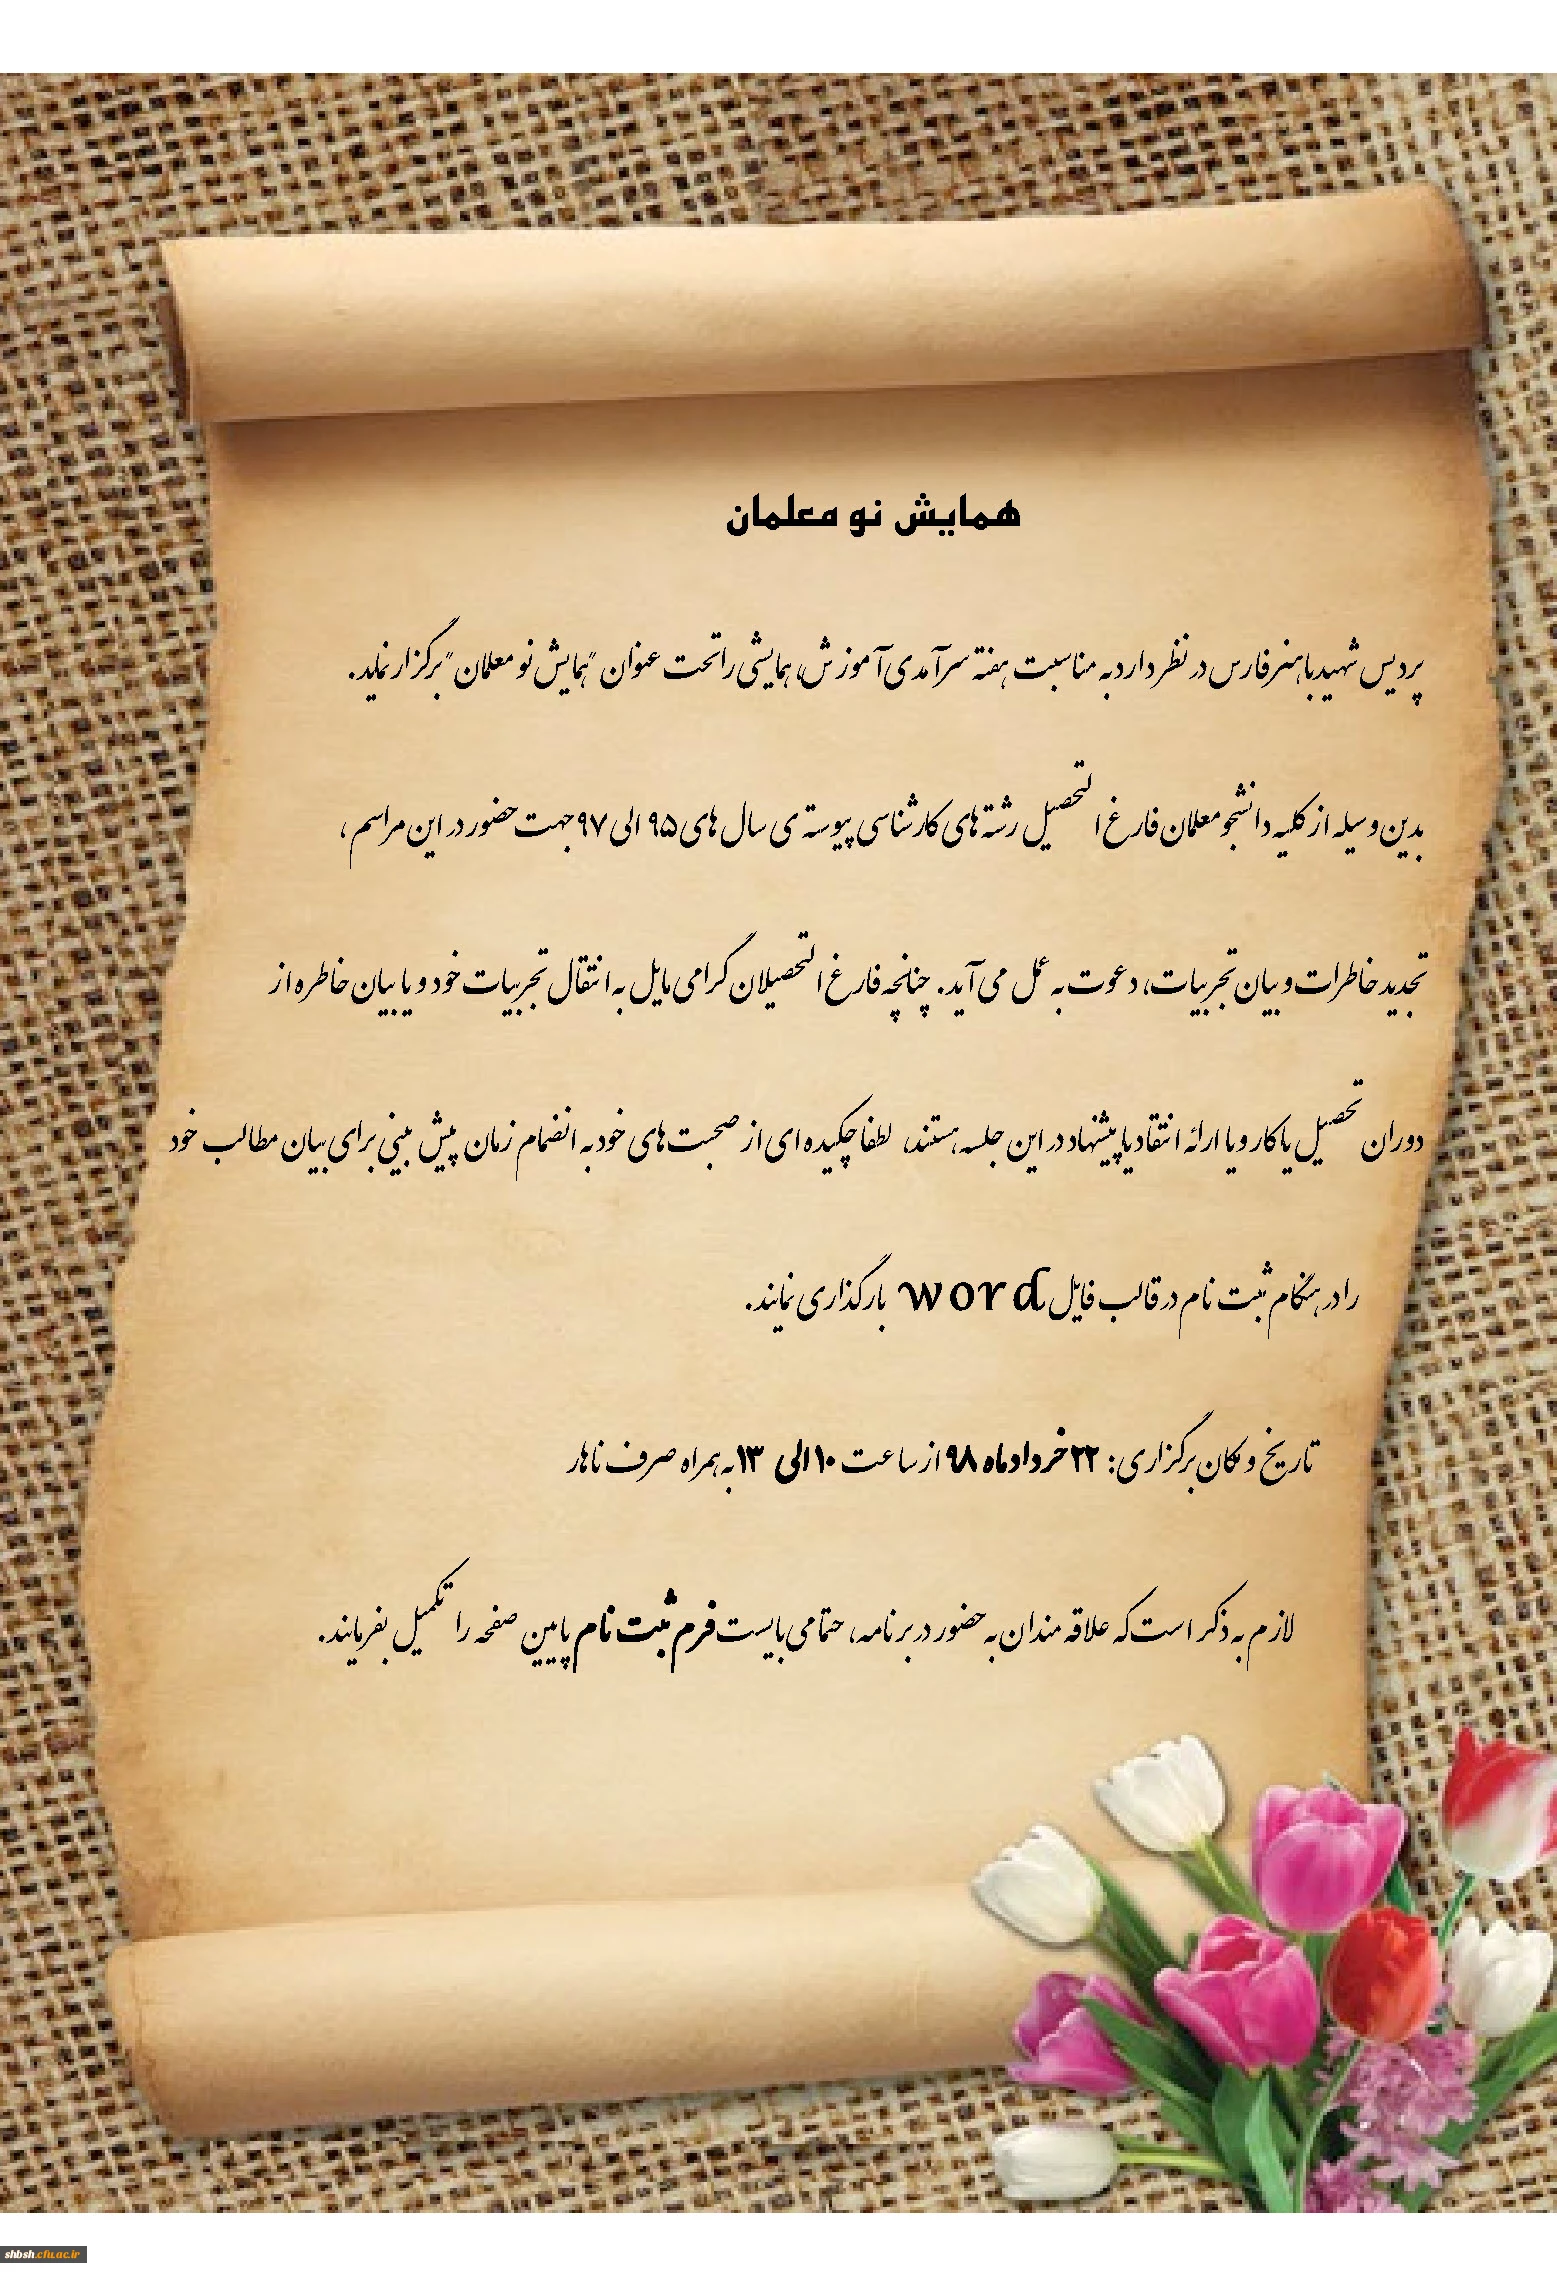 همایش نو معلمان
پردیس شهید باهنر فارس در نظر دارد به مناسبت هفته سرآمدی آموزش، همایشی را تحت عنوان "همایش نو معلمان" برگزار نماید.
بدین وسیله از کلیه دانشجو معلمان فارغ التحصیل رشته های کارشناسی پیوسته ی سال های ۹۵ الی ۹۷ جهت حضور در این مراسم ،
تجدید خاطرات و بیان تجربیات، دعوت به عمل می آید. چنانچه فارغ التحصیلان گرامی مایل به انتقال تجربیات خود و یا بیان خاطره از
دوران تحصیل یا کار و یا ارائه انتقاد یا پیشنهاد در این جلسه هستند، لطفا چکیده ای از صحبت های خود به انضمام زمان پیش بینی برای بیان مطالب خود
را در هنگام ثبت نام در قالب فایل word بارگذاری نمایند.
تاریخ و مکان برگزاری: ۲۲ خردادماه ۹۸ از ساعت ۱۰ الی ۱۳ به همراه صرف ناهار
لازم به ذکر است که علاقه مندان به حضور در برنامه، حتما می بایست فرم ثبت نام پایین صفحه را تکمیل بفرمایند.
shbsh.cfu.ac.ir